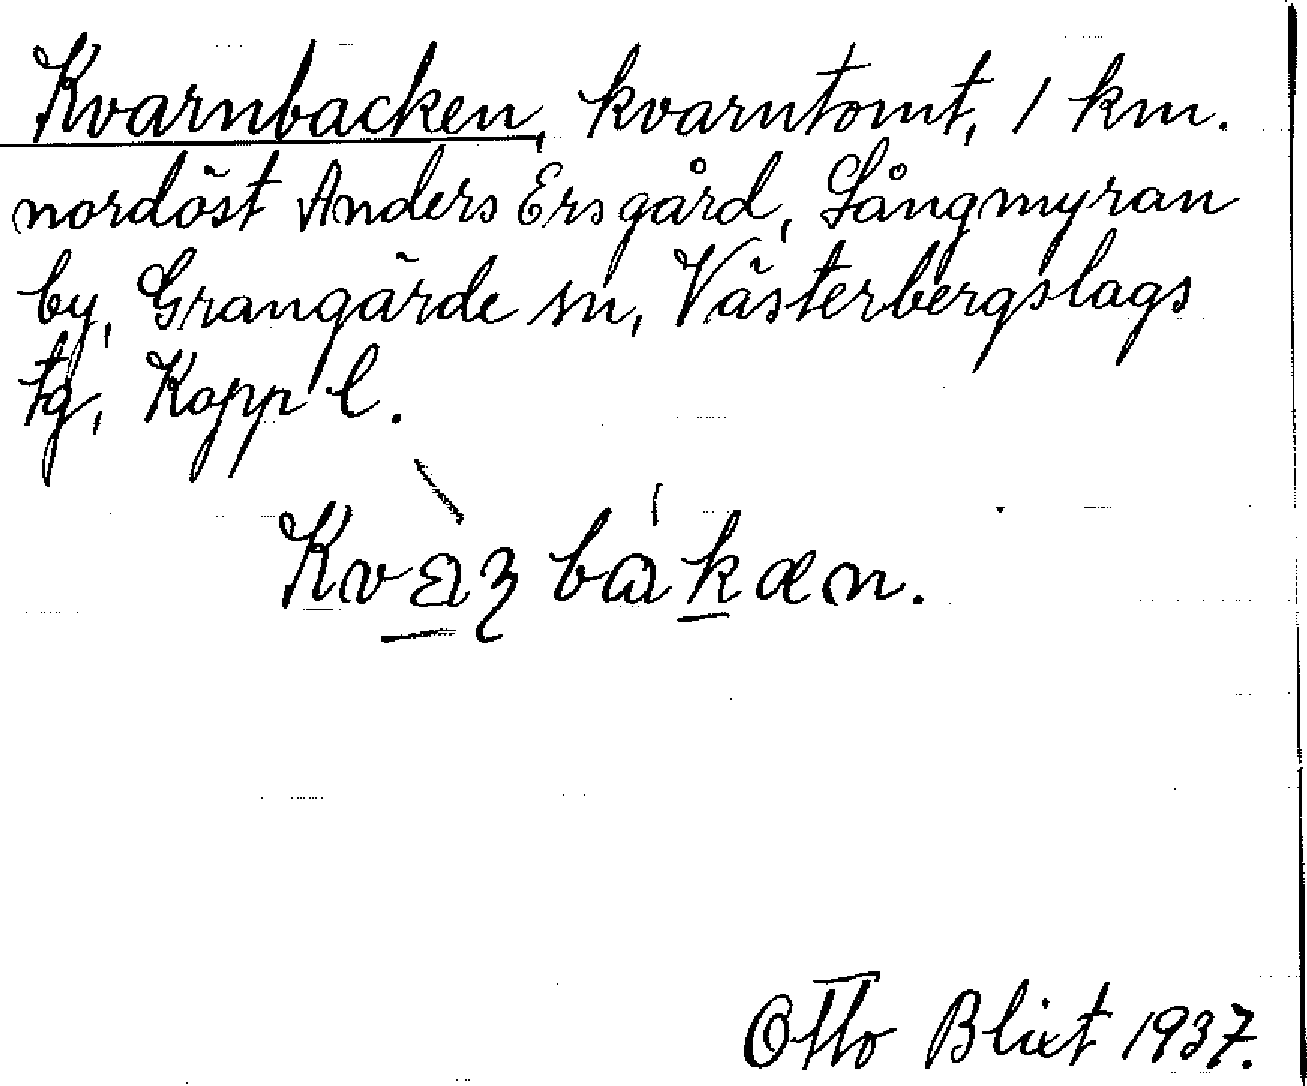 Kvarnbacken, kvarntomt, 1 km.
nordöst Anders Ersgård, Långmyran
by, Grangärde sn, Västerbergslags
tg, Kopp l.
Otto Blixt 1937.